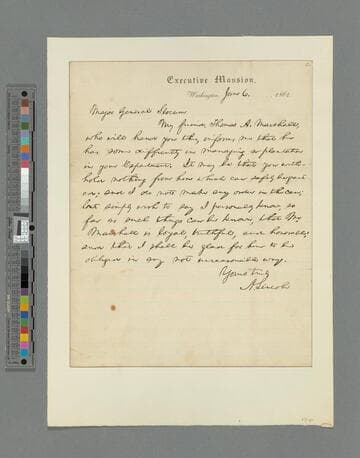 Executive Mansion,
Washington, June 6, 186
Major General Slocum
My friend, Thomas A. Marshall,
who will hand you this, informs me that he
has some difficulty in managing a plantation
in your Department. It may be that you with-
hold nothing from him which can safely be granted
and I do not make any order in the case;
but simply wish to say I personally know, so
far as such things can be known, that Mr.
Marshall is loyal, truthful, and honorable;
and that I shall be glad for him to be
obliged in any not unreasonable way.
Yours truly
A. Lincoln